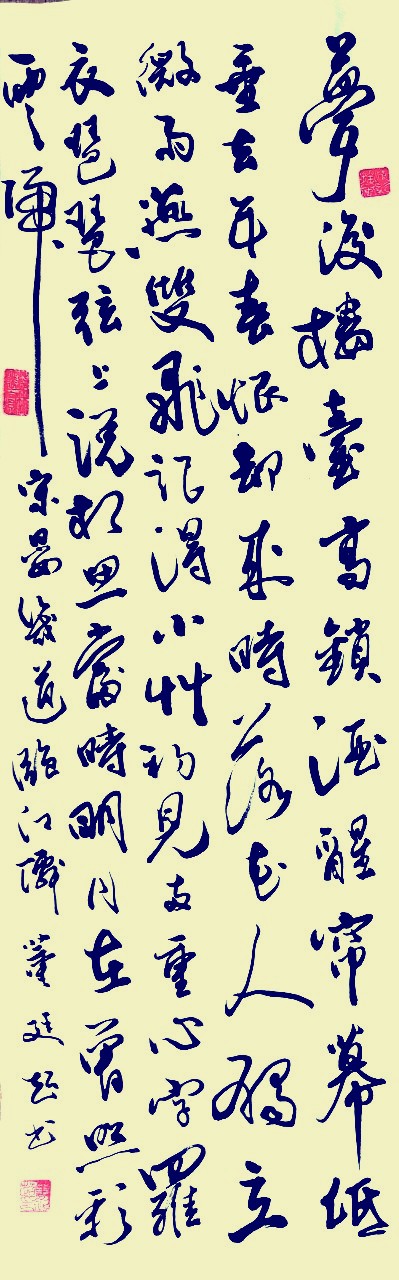 夢後樓臺高鎖酒醒帘幕低
垂去年春恨却來時落花人獨立
微雨燕雙飛記得小艸初見兩重心字羅
衣琵琶弦上説相思當時明月在曾照彩
雲歸 宋晏幾道臨江僊 董廷超书